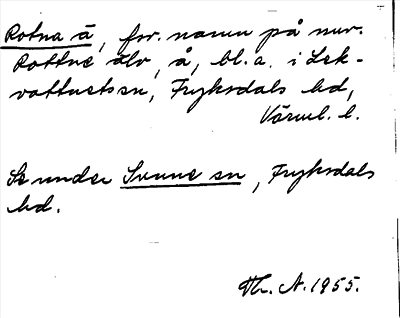 Rotna å, for. namn på nuv.
Rottne älv, å, bl. a. i Lek-
vattnets sn, Fryksdals hd,
Värml. l.
Se under Sunne sn, Fryksdals
hd.
Th. A. 1955.